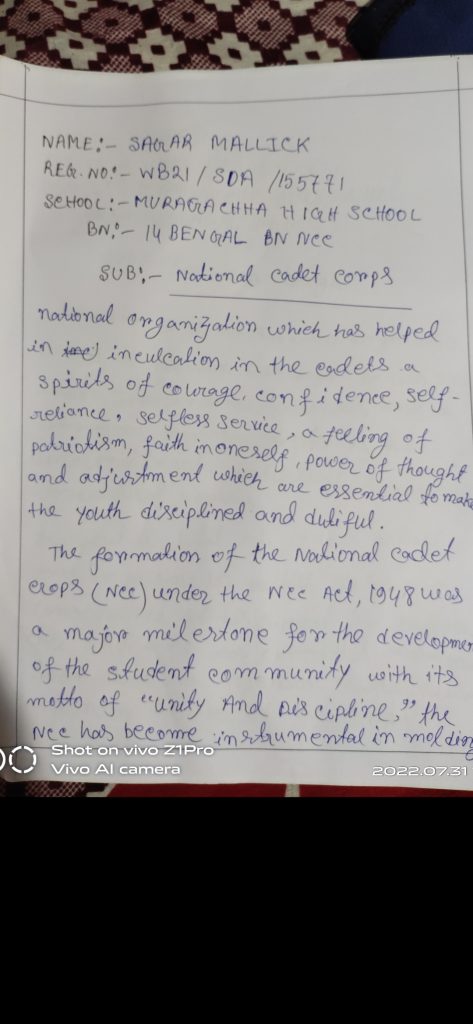 NAME:- SAGAR MALLICK
REG. NO:- WB21/SDA/155771
SCHOOL:- MURAGACHHA HIGH SCHOOL
BN:- 14 BENGAL BN NCC
SUB:- National cadet corps
national organization which has helped
in inculcation in the cadets a
spirits of courage, confidence, self-
reliance, selfless service, a feeling of
patriotism, faith in oneself, power of thought
and adjustment which are essential to make
the youth disciplined and dutiful.
The formation of the National cadet
crops (NCC) under the NCC Act, 1948 was
a major milestone for the developmen
of the student community with its
motto of "unity And Discipline," the
NCC has become instrumental in molding
Shot on vivo Z1Pro
Vivo AI camera
2022.07.31